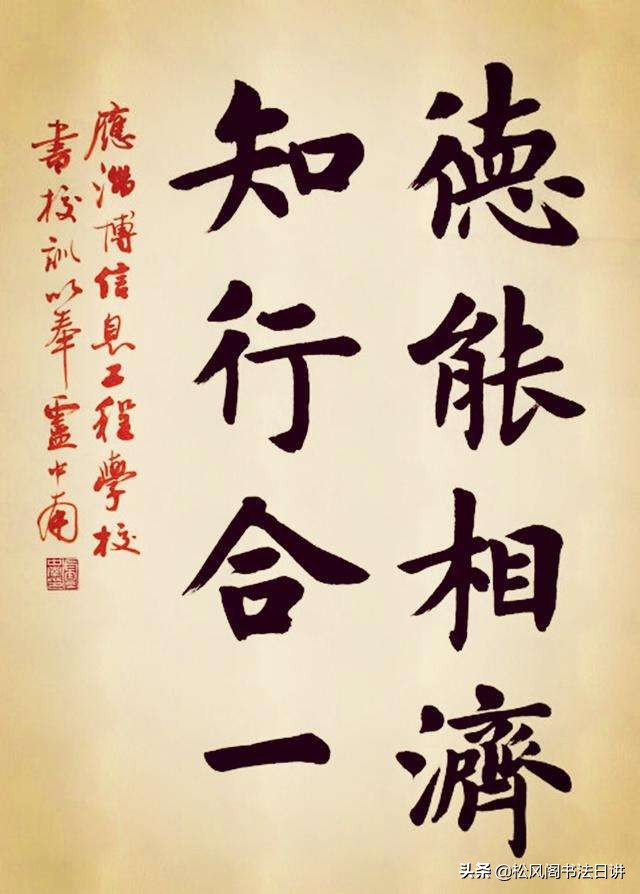 德能相濟
知行合一
應淄博信息工程學校
書校訓以奉 盧中南
头条 @松风阁书法日讲